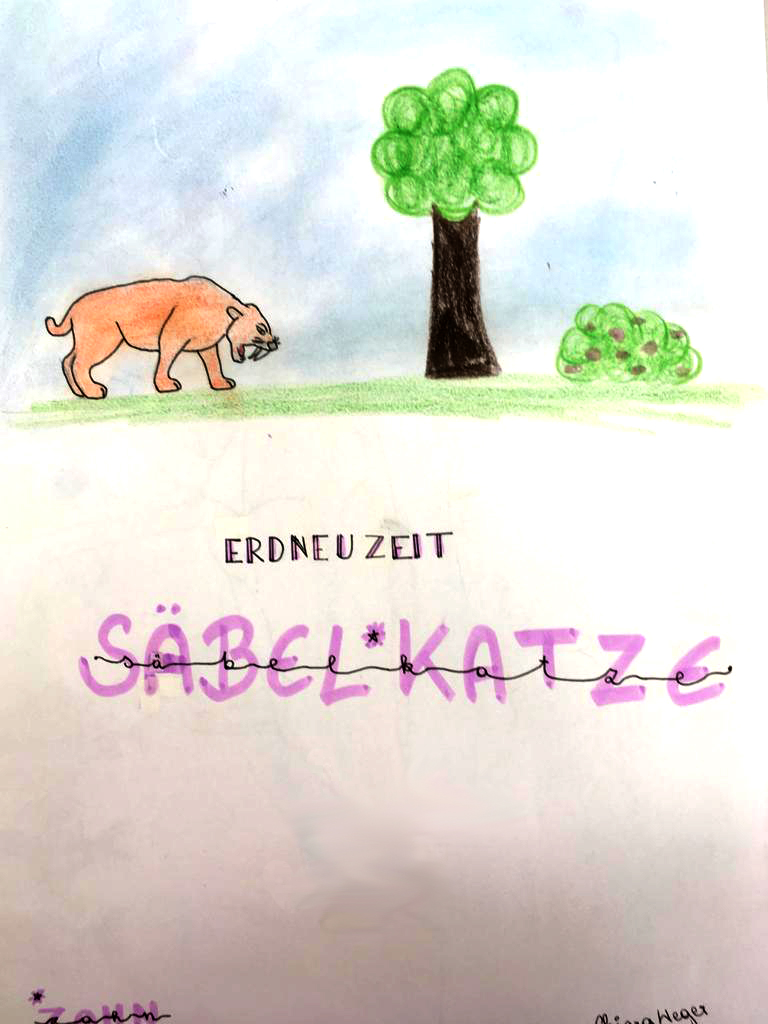 ERDNEUZEIT
SÄBEL*KATZE
säbelkatze
*ZAHN
zahn